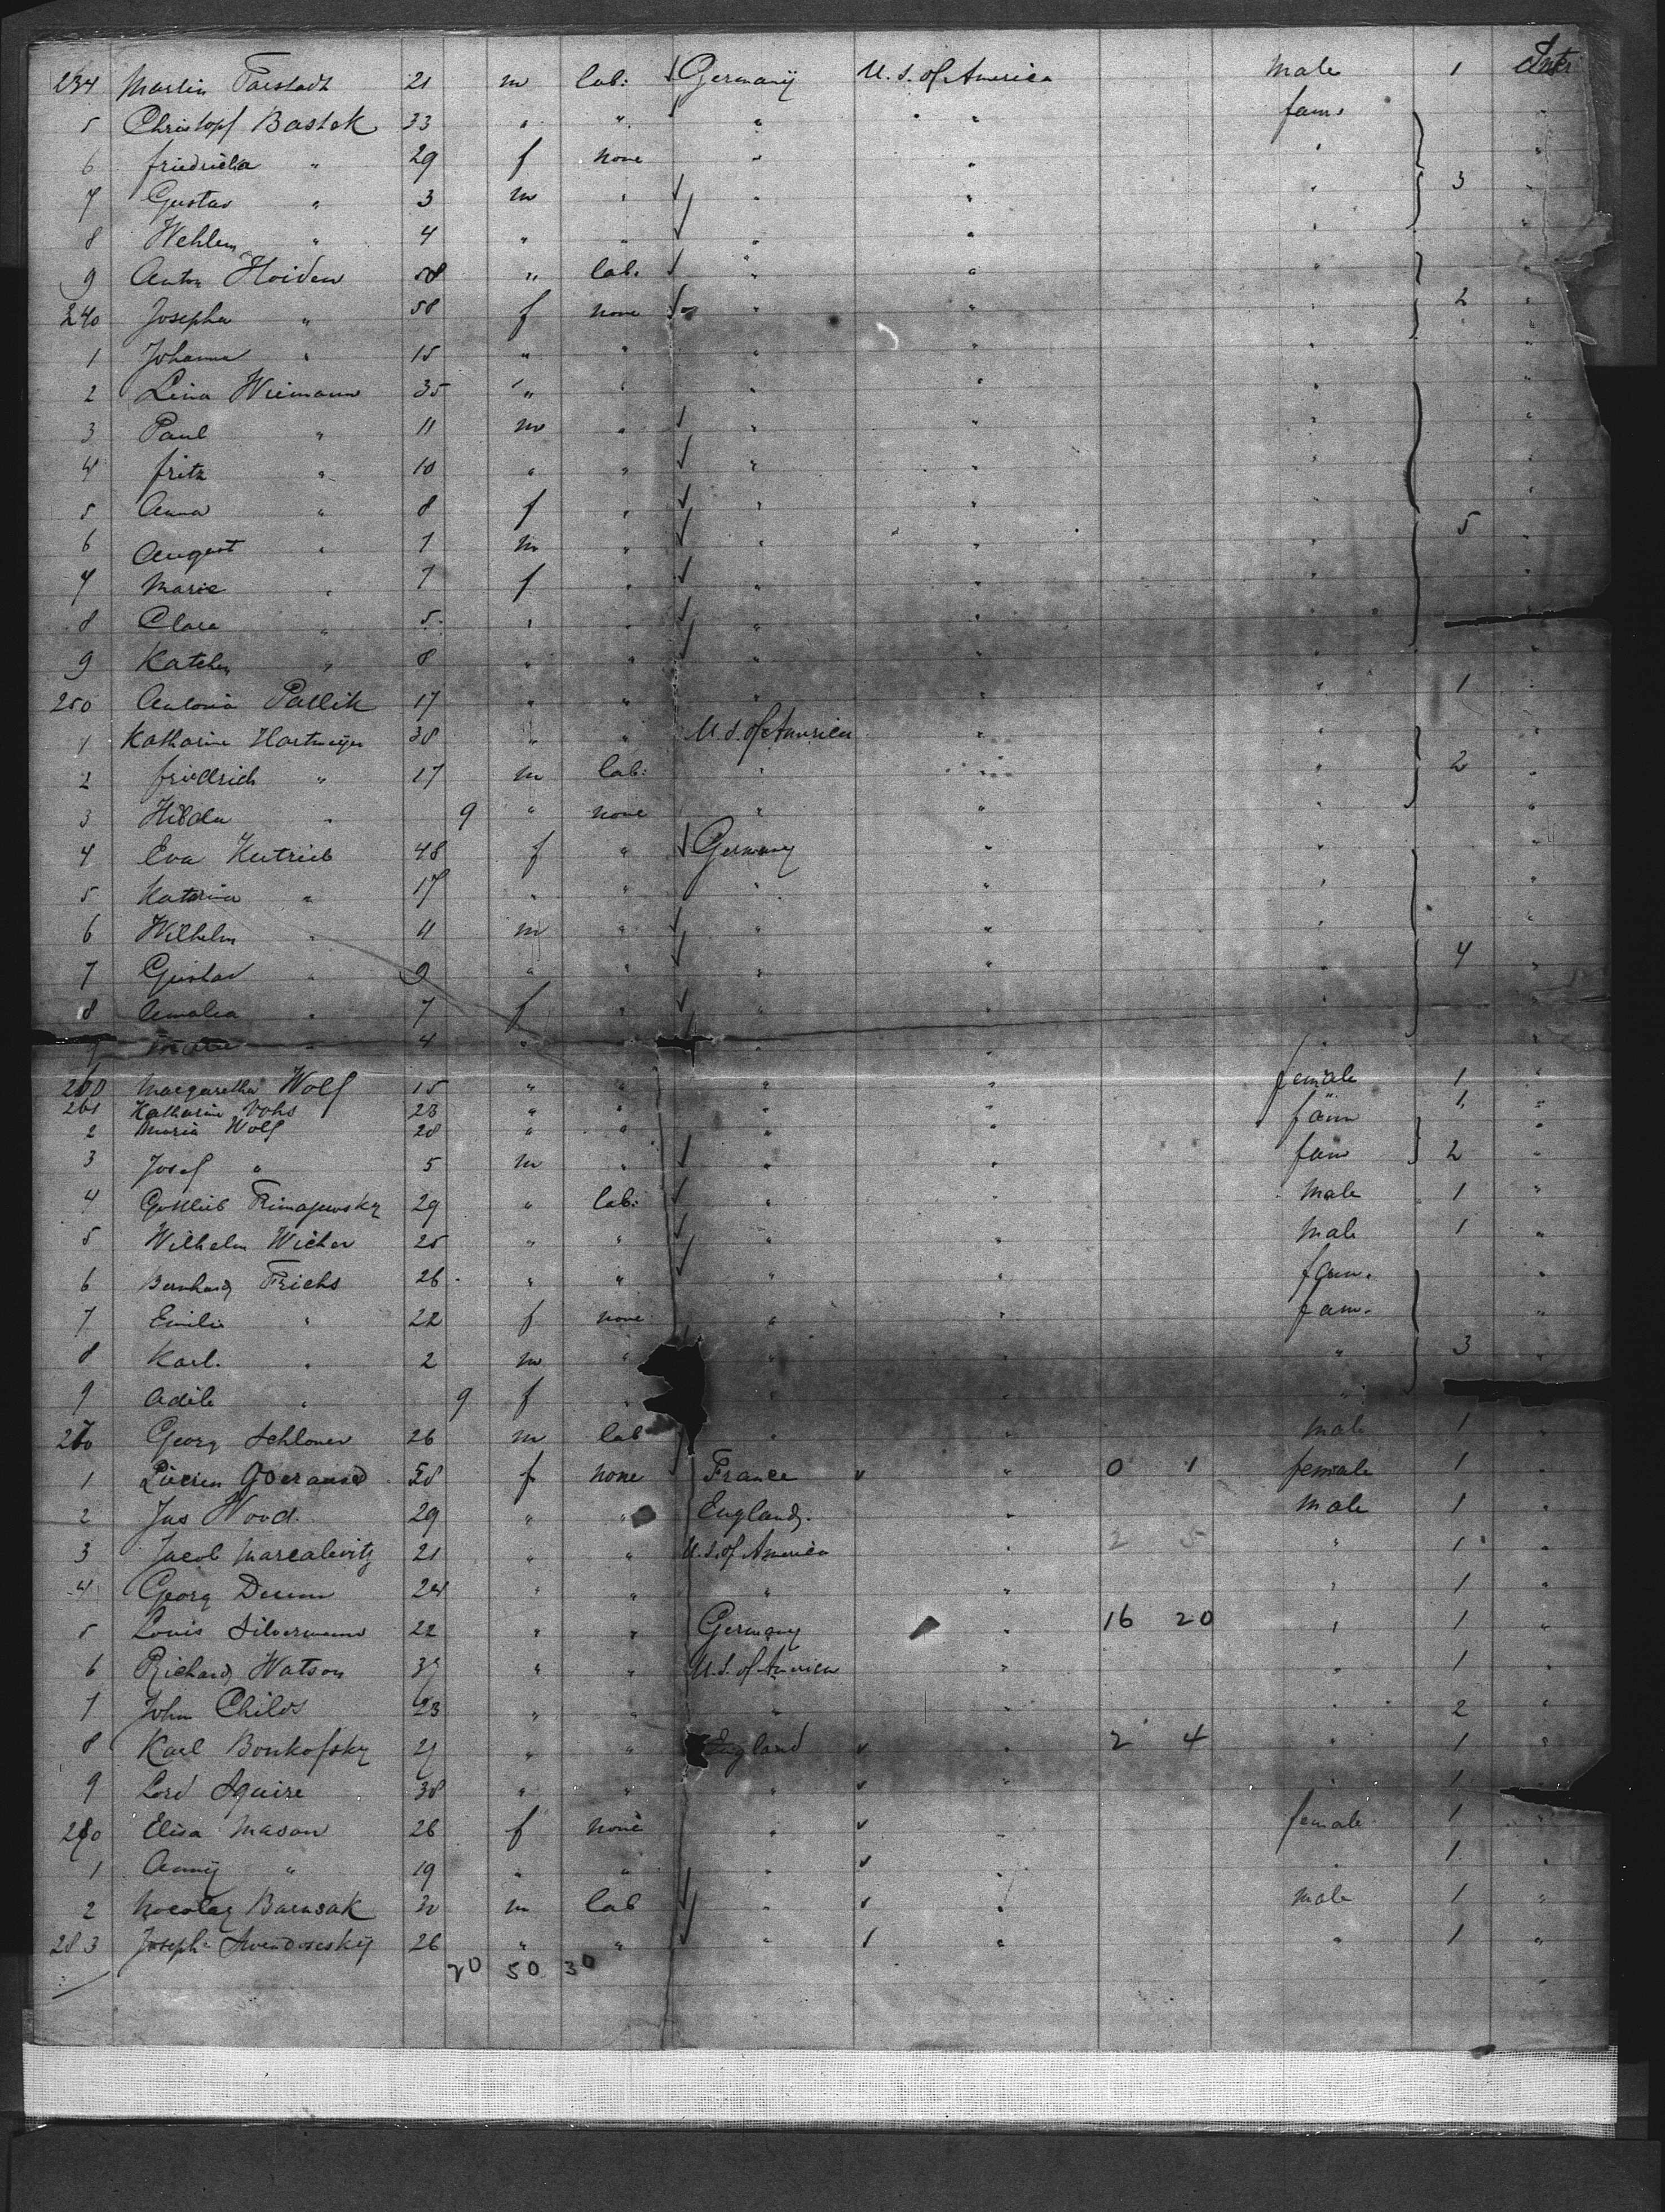 234 Martin Tarstadt 21 m lab: Germany U. S. of America male 1
5 Christopf Bastek 33 " " " " fam.
6 friedricka " 29 f none " " "
7 Gustav " 3 m " " " " 3
8 Wehlem " 4 " " " " "
9 Anton Hoiden 58 " lab. " " "
240 Josepha " 58 f none " " " 2
1 Johanna " 15 " " " " "
2 Lina Wiemann 35 " " " " "
3 Paul " 11 m " " " "
4 fritz " 10 " " " " "
5 Anna " 8 f " " " "
6 August " 7 m " " " " 5
7 Marie " 7 f " " " "
8 Clara " 5 " " " " "
9 Katchen " 8 " " " " "
250 Antonia Pallik 17 " " " " " 1
1 Katharine Hartmeyer 38 " " U. S. of America " "
2 friedrich " 17 m lab: " " " 2
3 Hilda " 9 " none " " "
4 Eva Kutrieb 48 f " Germany " "
5 Katarina " 17 " " " " "
6 Wilhelm " 11 m " " " "
7 Gustav " 9 " " " " " 4
8 Amalia " 7 f " " " "
9 " 4 " " " "
260 Margaretha Wolf 15 " " " " female 1
261 Katharine Vohs 23 " " " " fam 1
2 Maria Wolf 28 " " " "
3 Josef " 5 m " " " fam 2
4 Gottlieb 29 " lab: " " male 1
5 Wilhelm Wicher 25 " " " " male 1
6 Bernhard Frichs 26 " " " " fam.
7 Emilie " 22 f none " " fam.
8 Karl. " 2 m " " " " 3
9 Adele " 9 f " " " "
270 Georg Schloner 26 m lab " " male 1
1 Lucien 58 f none France " 0 1 female 1
2 Jas Wood. 29 " " England. " male 1
3 Jacob Marcalevitz 21 " " U. S. of America " 2 5 " 1
4 Georg 24 " " " " " 1
5 Louis Silvermann 22 " " Germany " 16 20 " 1
6 Richard Watson 37 " " U. S. of America " " 1
7 John Childs 23 " " " " " 2
8 Karl Bonkofsky 27 " " England " 2 4 " 1
9 Lord Squire 38 " " " " " 1
280 Elisa Mason 26 f none " " female 1
1 Anny " 19 " " " " " 1
2 Nocolaz Barusak m lab " " male 1
283 Joseph 26 " " " " " 1
20 50 30